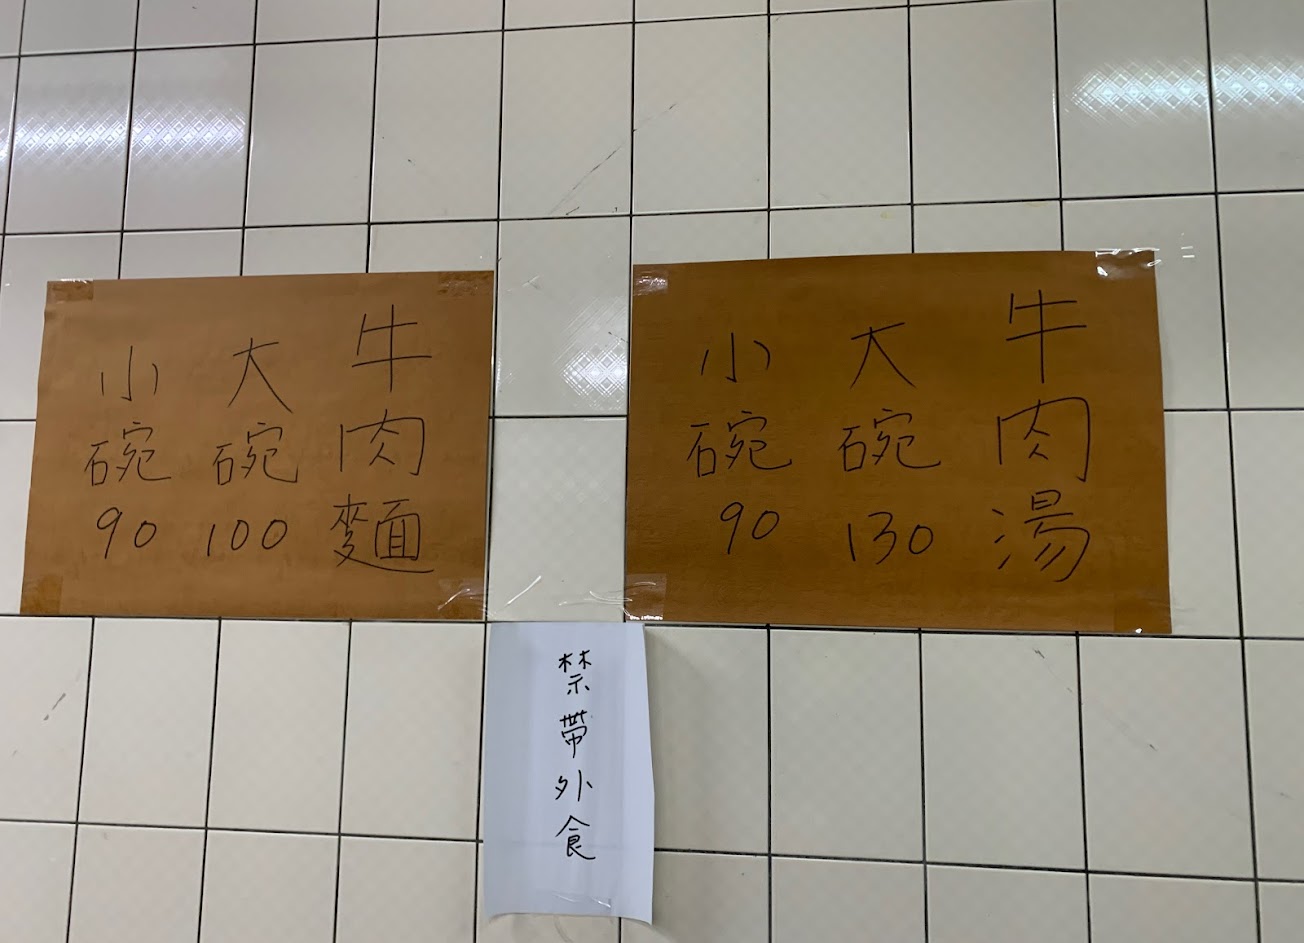 牛肉湯
大碗130
小碗90
牛肉麵
大碗100
小碗90
禁帶外食